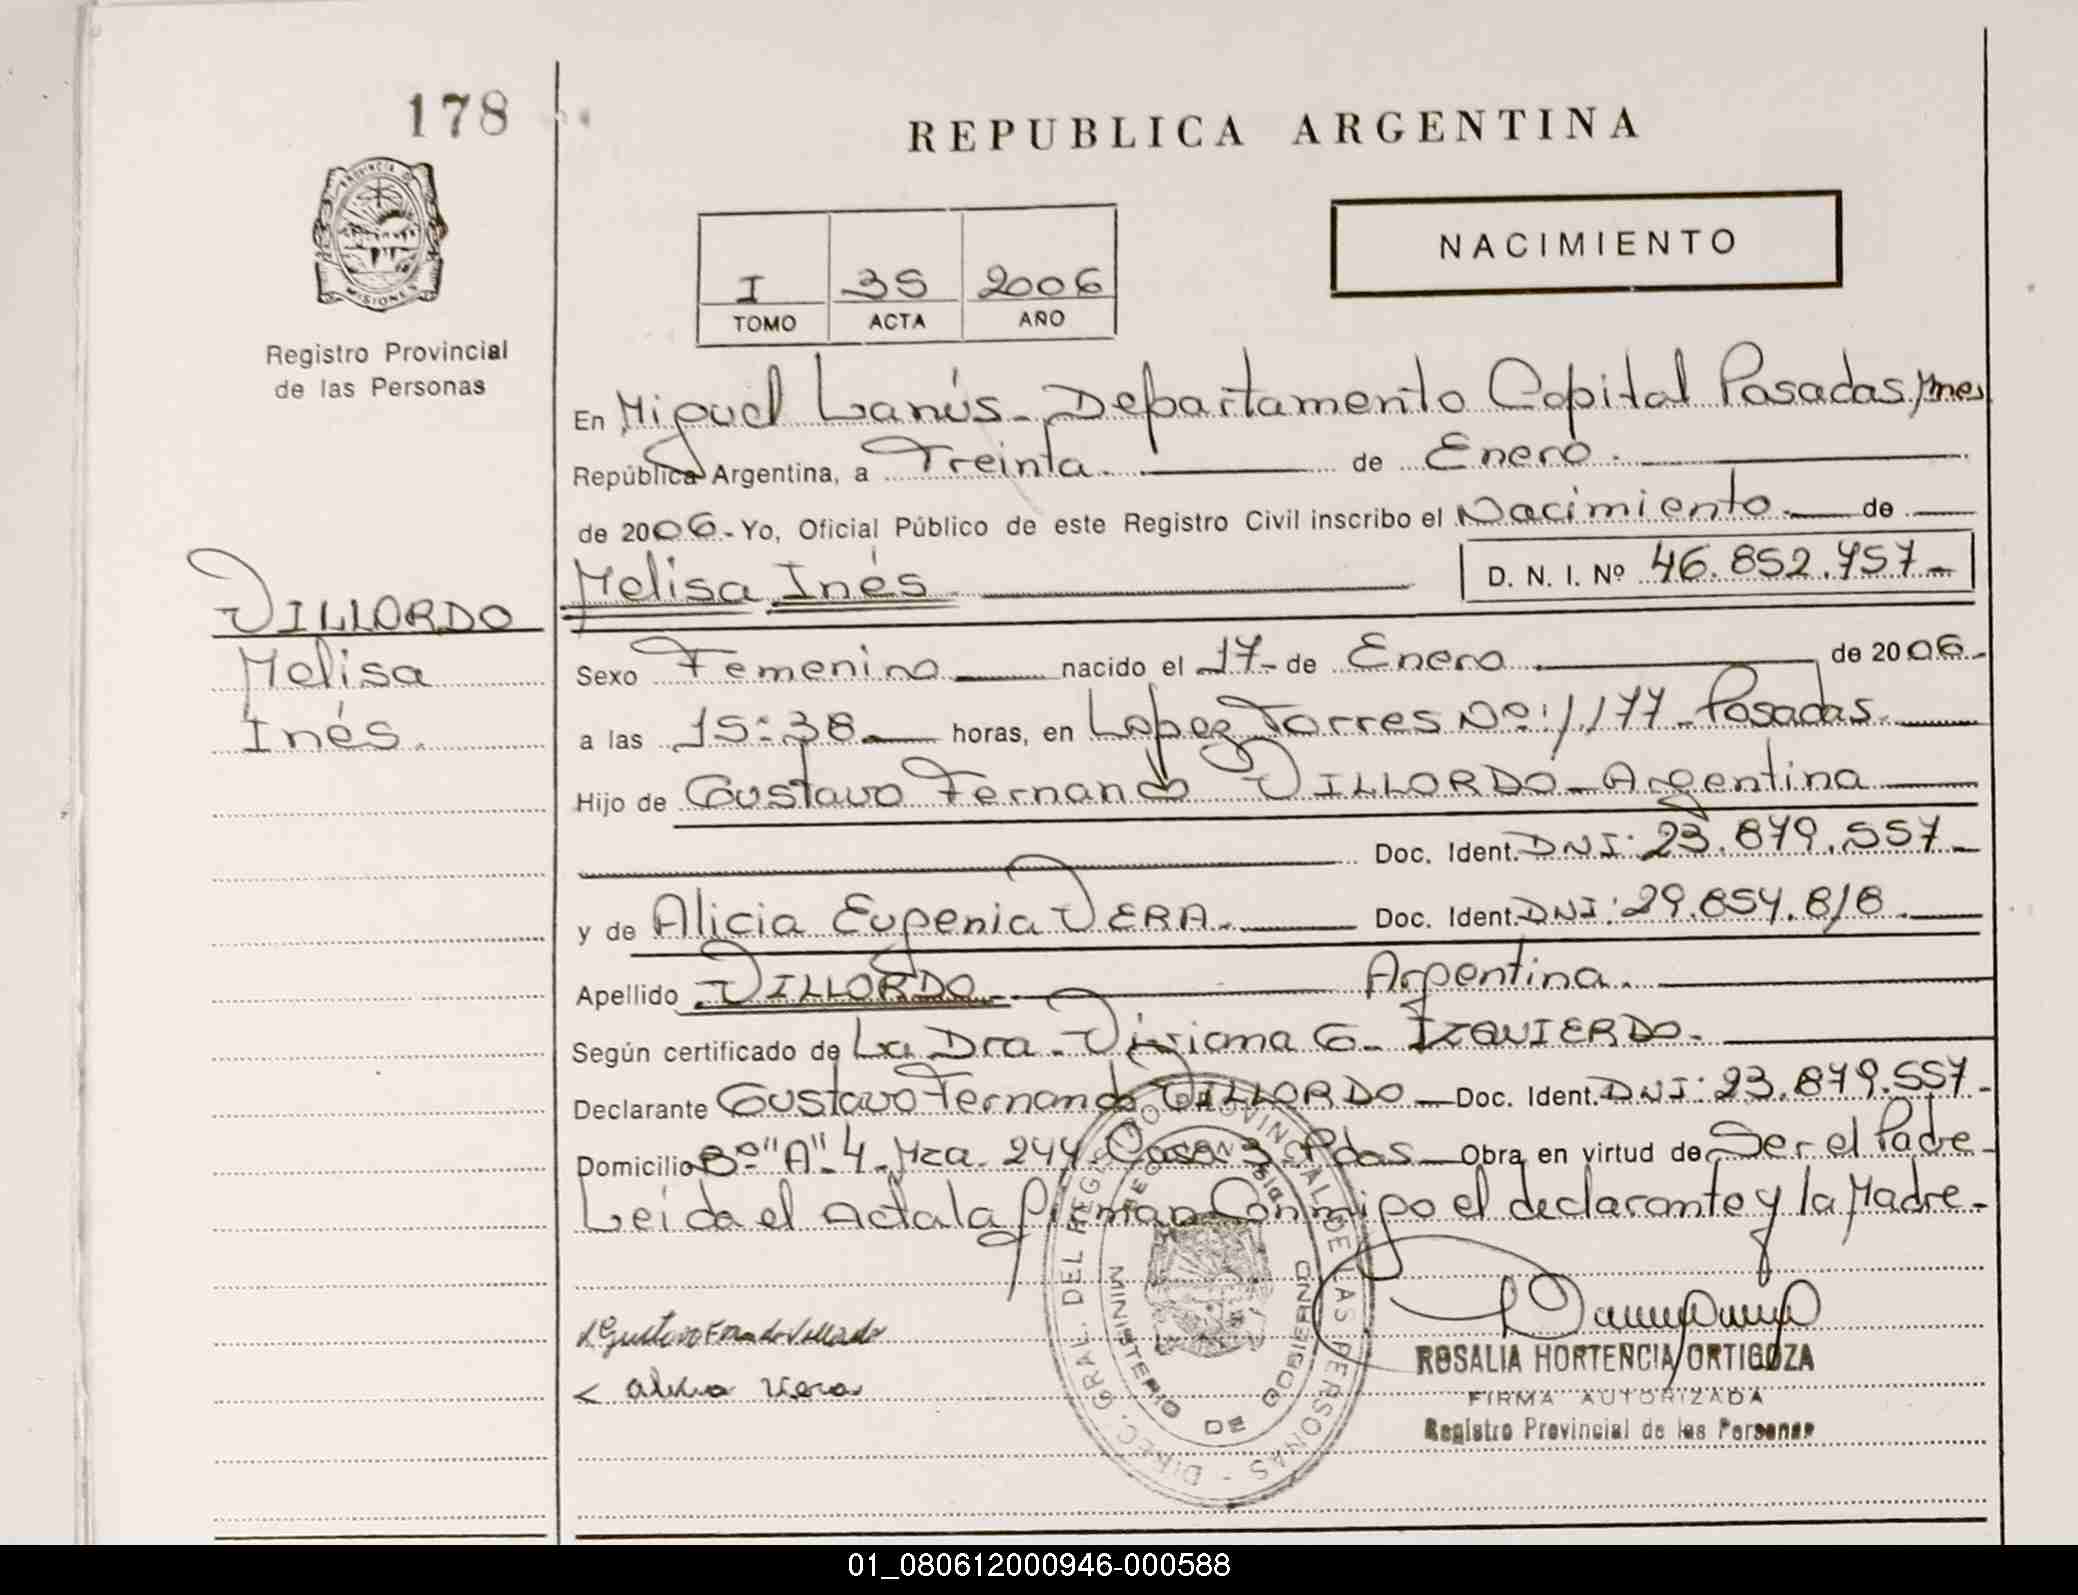 178
REPUBLICA ARGENTINA
NACIMIENTO
I 35 2006
TOMO ACTA AÑO
PROVINCIA DE MISIONES
Registro Provincial
de las Personas
En Miguel Lanús - Departamento Capital Posadas, Mnes
República Argentina, a Treinta. de Enero.
de 2006.- Yo, Oficial Público de este Registro Civil inscribo el Nacimiento. de
Melisa Inés D. N. I. Nº 46.852.757-
VILLORDO
Melisa
Inés.
Sexo Femenino nacido el 17- de Enero de 2006.-
a las 15:38 horas, en Lopez Torres Nº: 1.177 - Posadas.
Hijo de Gustavo Fernando VILLORDO - Argentina
Doc. Ident. DNI: 23.879.557.-
y de Alicia Eugenia VERA. Doc. Ident. DNI: 29.854.818.-
Apellido VILLORDO Argentina.
Según certificado de La Dra. Viviana G. IZQUIERDO.
Declarante Gustavo Fernando VILLORDO Doc. Ident. DNI: 23.879.557.-
Domicilio Bº "A" 4 - Mza. 244 Casa 3 - Pdas Obra en virtud de Ser el Padre-
Leida el Acta la firman Conmigo el declarante y la Madre.-
Gustavo Fernando Villordo
Alicia Vera
DIREC. GRAL. DEL REGISTRO PROVINCIAL DE LAS PERSONAS
MINISTERIO DE GOBIERNO
ROSALIA HORTENCIA ORTIGOZA
FIRMA AUTORIZADA
Registro Provincial de las Personas
01_080612000946-000588